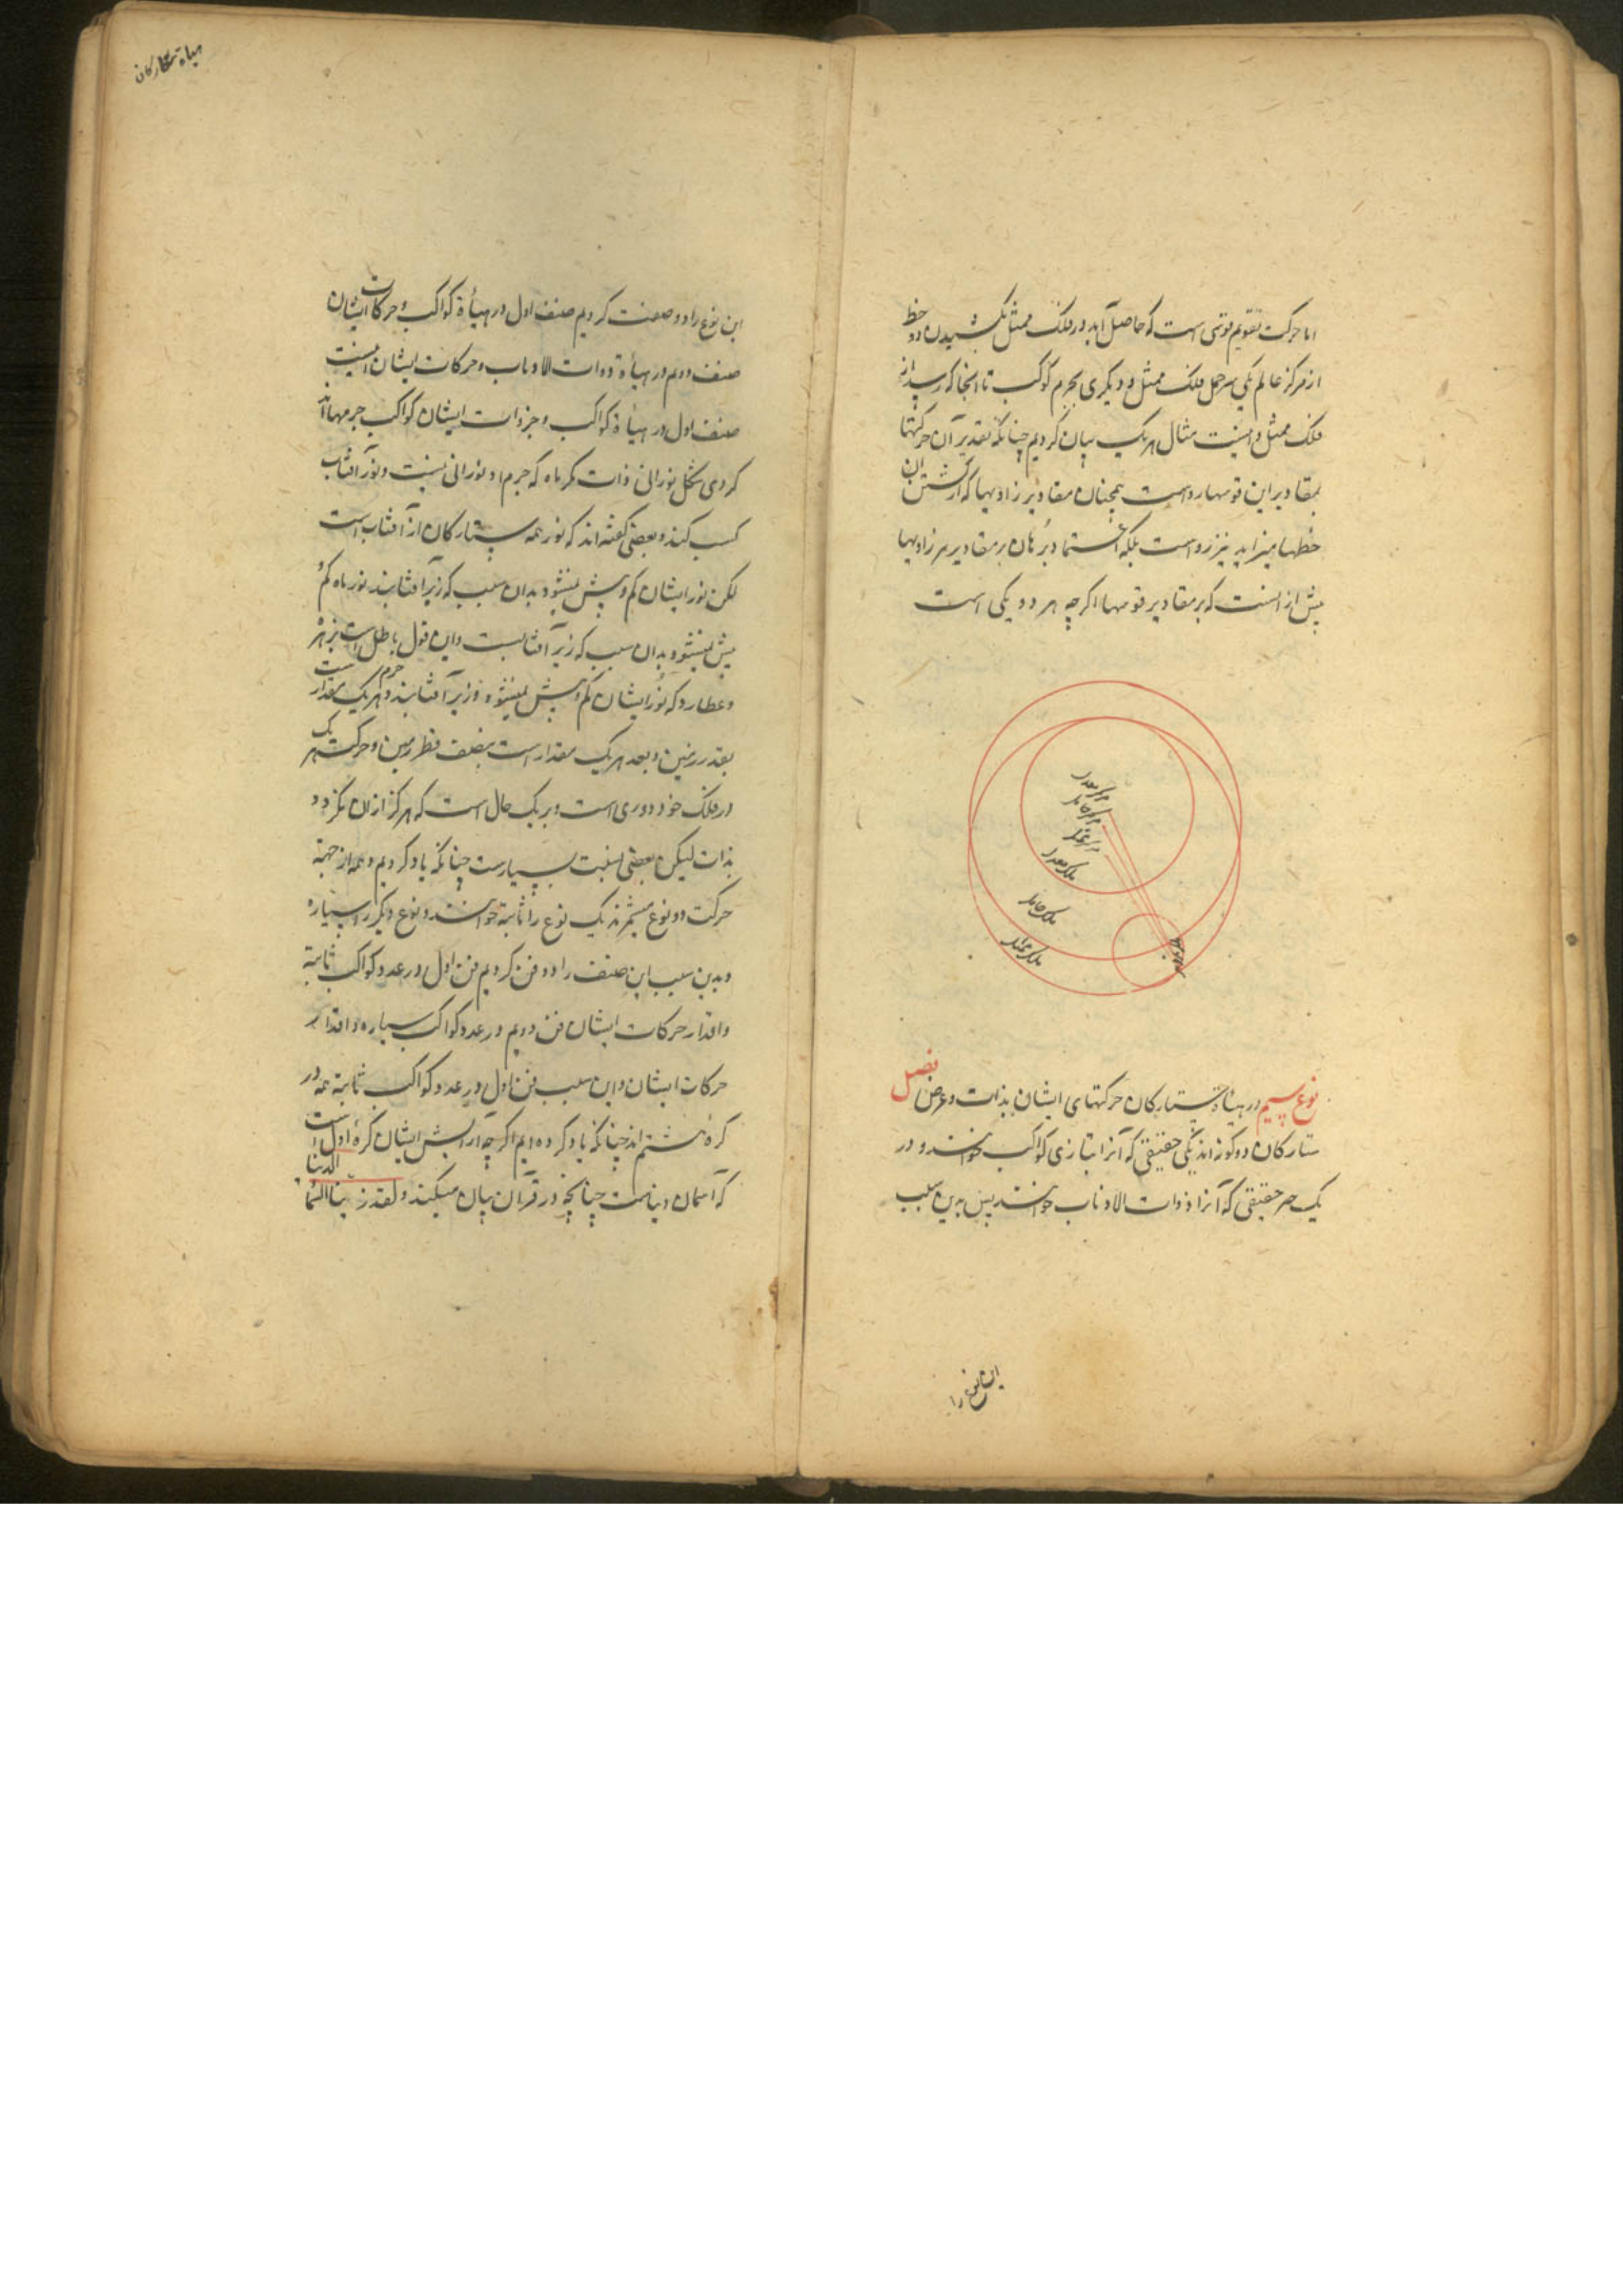 اما حرکت تقویم قوسی است که حاصل آید در فلک ممثل بکشیدن دو خط
از مرکز عالم یکی بسر حمل فلک ممثل و دیگری بجرم کوکب تا انجا که رسد از
فلک ممثل و اینست مثال هر یک بیان کردیم چنانکه تقدیر آن حرکتها
بمقادیر این قوسها رواست همچنان مقادیر زاویها که از کشتن ان
خطها میزاید نیز رواست بلکه بر مقادیر زاویها
بیش از انست که بر مقادیر قوسها اگرچه هر دو یکی است
مرکز معدل
مرکز حامل
مرکز ممثل
فلک معدل
فلک حامل
فلک ممثل
فلک تدویر
نوع سیم در هیاة ستارکان حرکتهای ایشان بذات و عرض فصل
ستارکان دو کونه اند یکی حقیقی که آنرا بتازی کواکب خوانند و در
یک جز حقیقی که آنرا ذوات الاذناب خوانند پس بدین سبب
این نوع را
هیاة ستارکان
این نوع را دو صنف کردیم صنف اول در هیأة کواکب و حرکات ایشان
صنف دوم در هیأة ذوات الاذناب و حرکات ایشان اینست
صنف اول در هیأة کواکب و حرکات ایشان کواکب جرمها اند
کروی شکل نورانی ذات مکر ماه که جرم او نورانی نیست و نور آفتاب
کسب کند و بعضی کفته اند که نور همه ستارکان از آفتاب است
لکن نور ایشان کم و بیش نمیشود بدان سبب که زبر آفتابند نور ماه کم و
بیش میشود بدان سبب که زیر آفتابست و این قول باطل است بزهره
و عطارد که نور ایشان کم و بیش نمیشود و زیر آفتابند و جرم هر یک مقدار است
بقدر زمین و بعد هر یک مقدار است بنصف قطر زمین و حرکت هر یک
در فلک خود دوری است و بر یک حال است که هرکز از ان نکردد
بذات لیکن بعضی بنسبت بسیارست چنانکه یاد کردیم و همه از جهة
حرکت دو نوع میشمرند یک نوع را ثابته خوانند و نوع دیکر را سیاره
و بدین سبب این صنف را دو فن کردیم فن اول در عدد کواکب ثابتة
و اقدار حرکات ایشان فن دویم در عدد کواکب سیاره و اقدار
حرکات ایشان و این سبب فن اول در عدد کواکب ثابتة همه در
کرهٔ هشتم اند چنانکه یاد کرده ایم اکرچه آرایش ایشان کرهٔ اول است
که آسمان دنیاست چنانچه در قرآن بیان میکند و لقد زینا السماء الدنیا